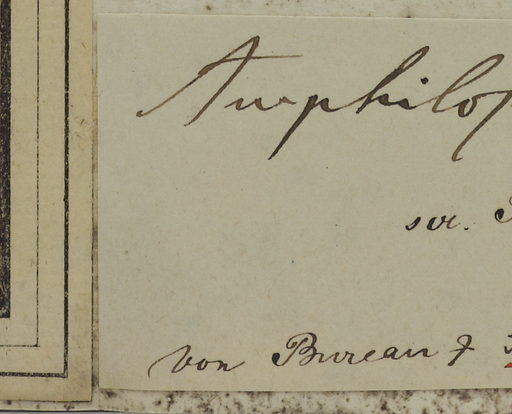 Amphilop
scr.
von Bureau &